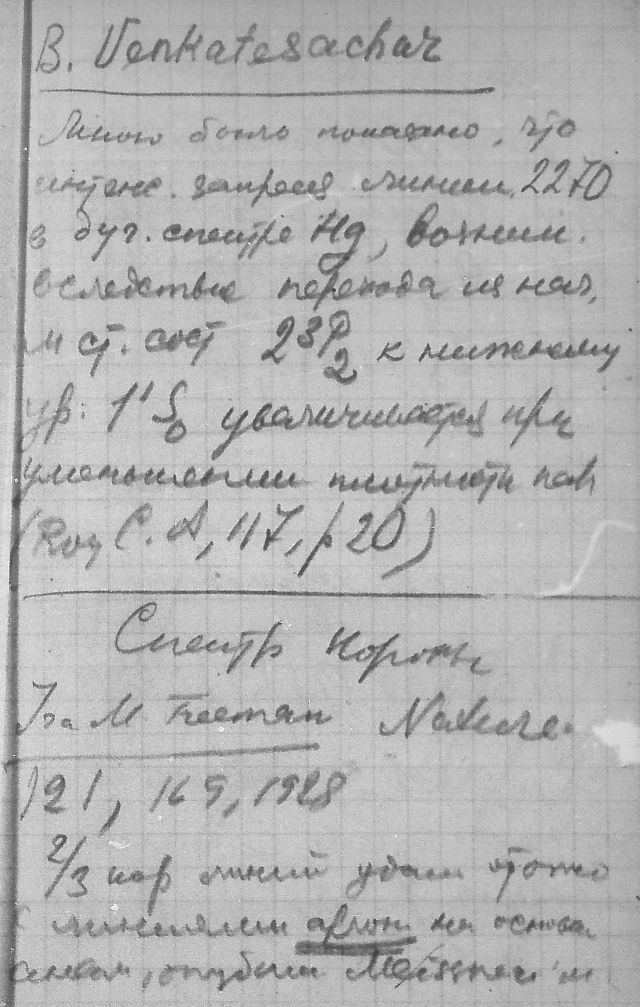 B. Venkatesachar
Мною было показано, что
интенс. запрещ линии 2270
в дуг. спектре Hg, возник.
вследствие перехода из нач.
м ст. сост 2³P₂ к нижнему
ур. 1¹S₀ увеличивается при
уменьшении плотности пар
C. A, 117, p 20)
Спектр короны
Ira M Freeman Nature.
121, 169, 1928
2/3 кор линий удал отожд
с линиями аргон на основа
опубли Meissner'м